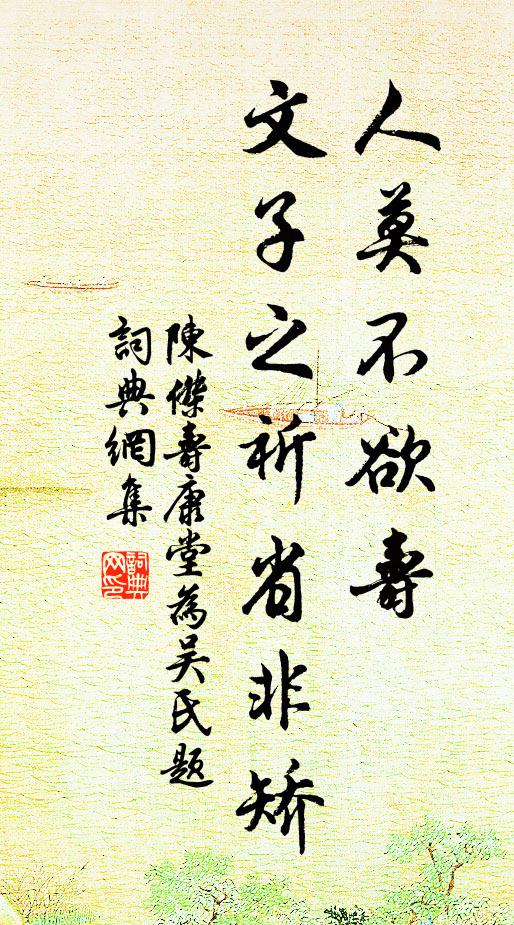 人莫不欲壽
文子之祈省非矯
陳傑壽康堂為吳氏題
詞典網集
詞典网印